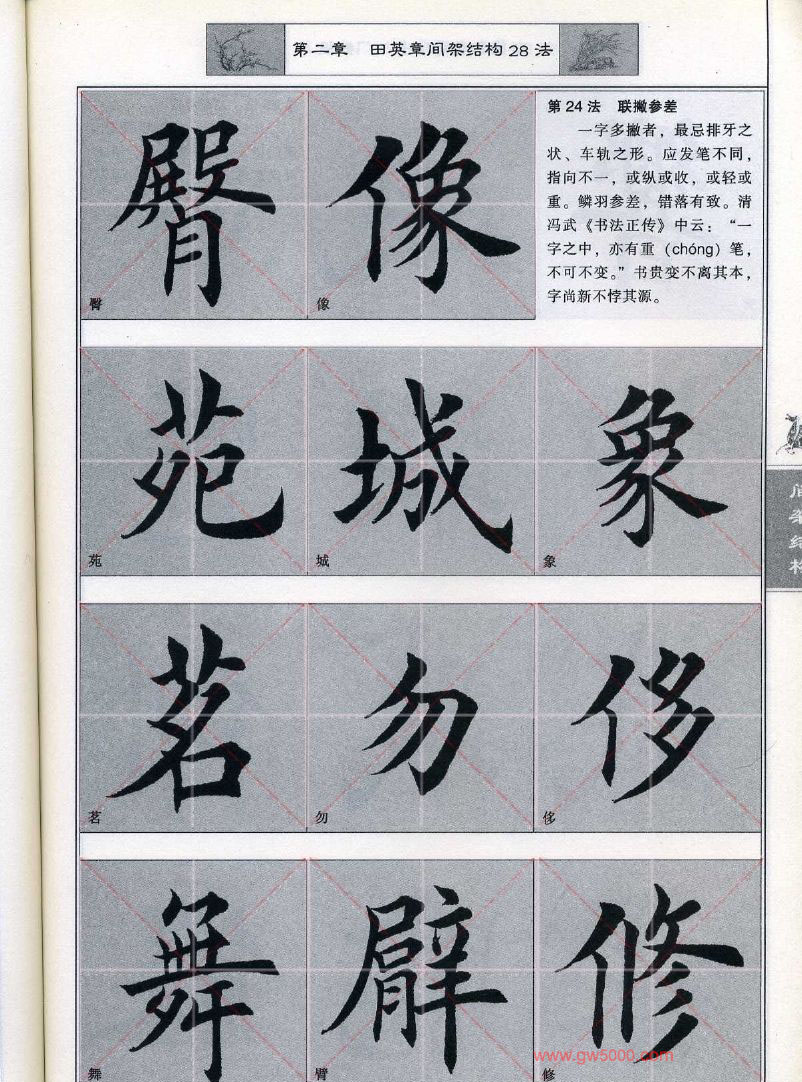 第二章 田英章间架结构28法
第24法 联撇参差
一字多撇者，最忌排牙之
状、车轨之形。应发笔不同，
指向不一，或纵或收，或轻或
重。鳞羽参差，错落有致。清
冯武《书法正传》中云：“一
字之中，亦有重（chóng）笔，
不可不变。”书贵变不离其本，
字尚新不悖其源。
臀 像
臀 像
苑 城 象
苑 城 象
间架结构
茗 勿 侈
茗 勿 侈
舞 臂 修
舞 臂 修
www.gw5000.com